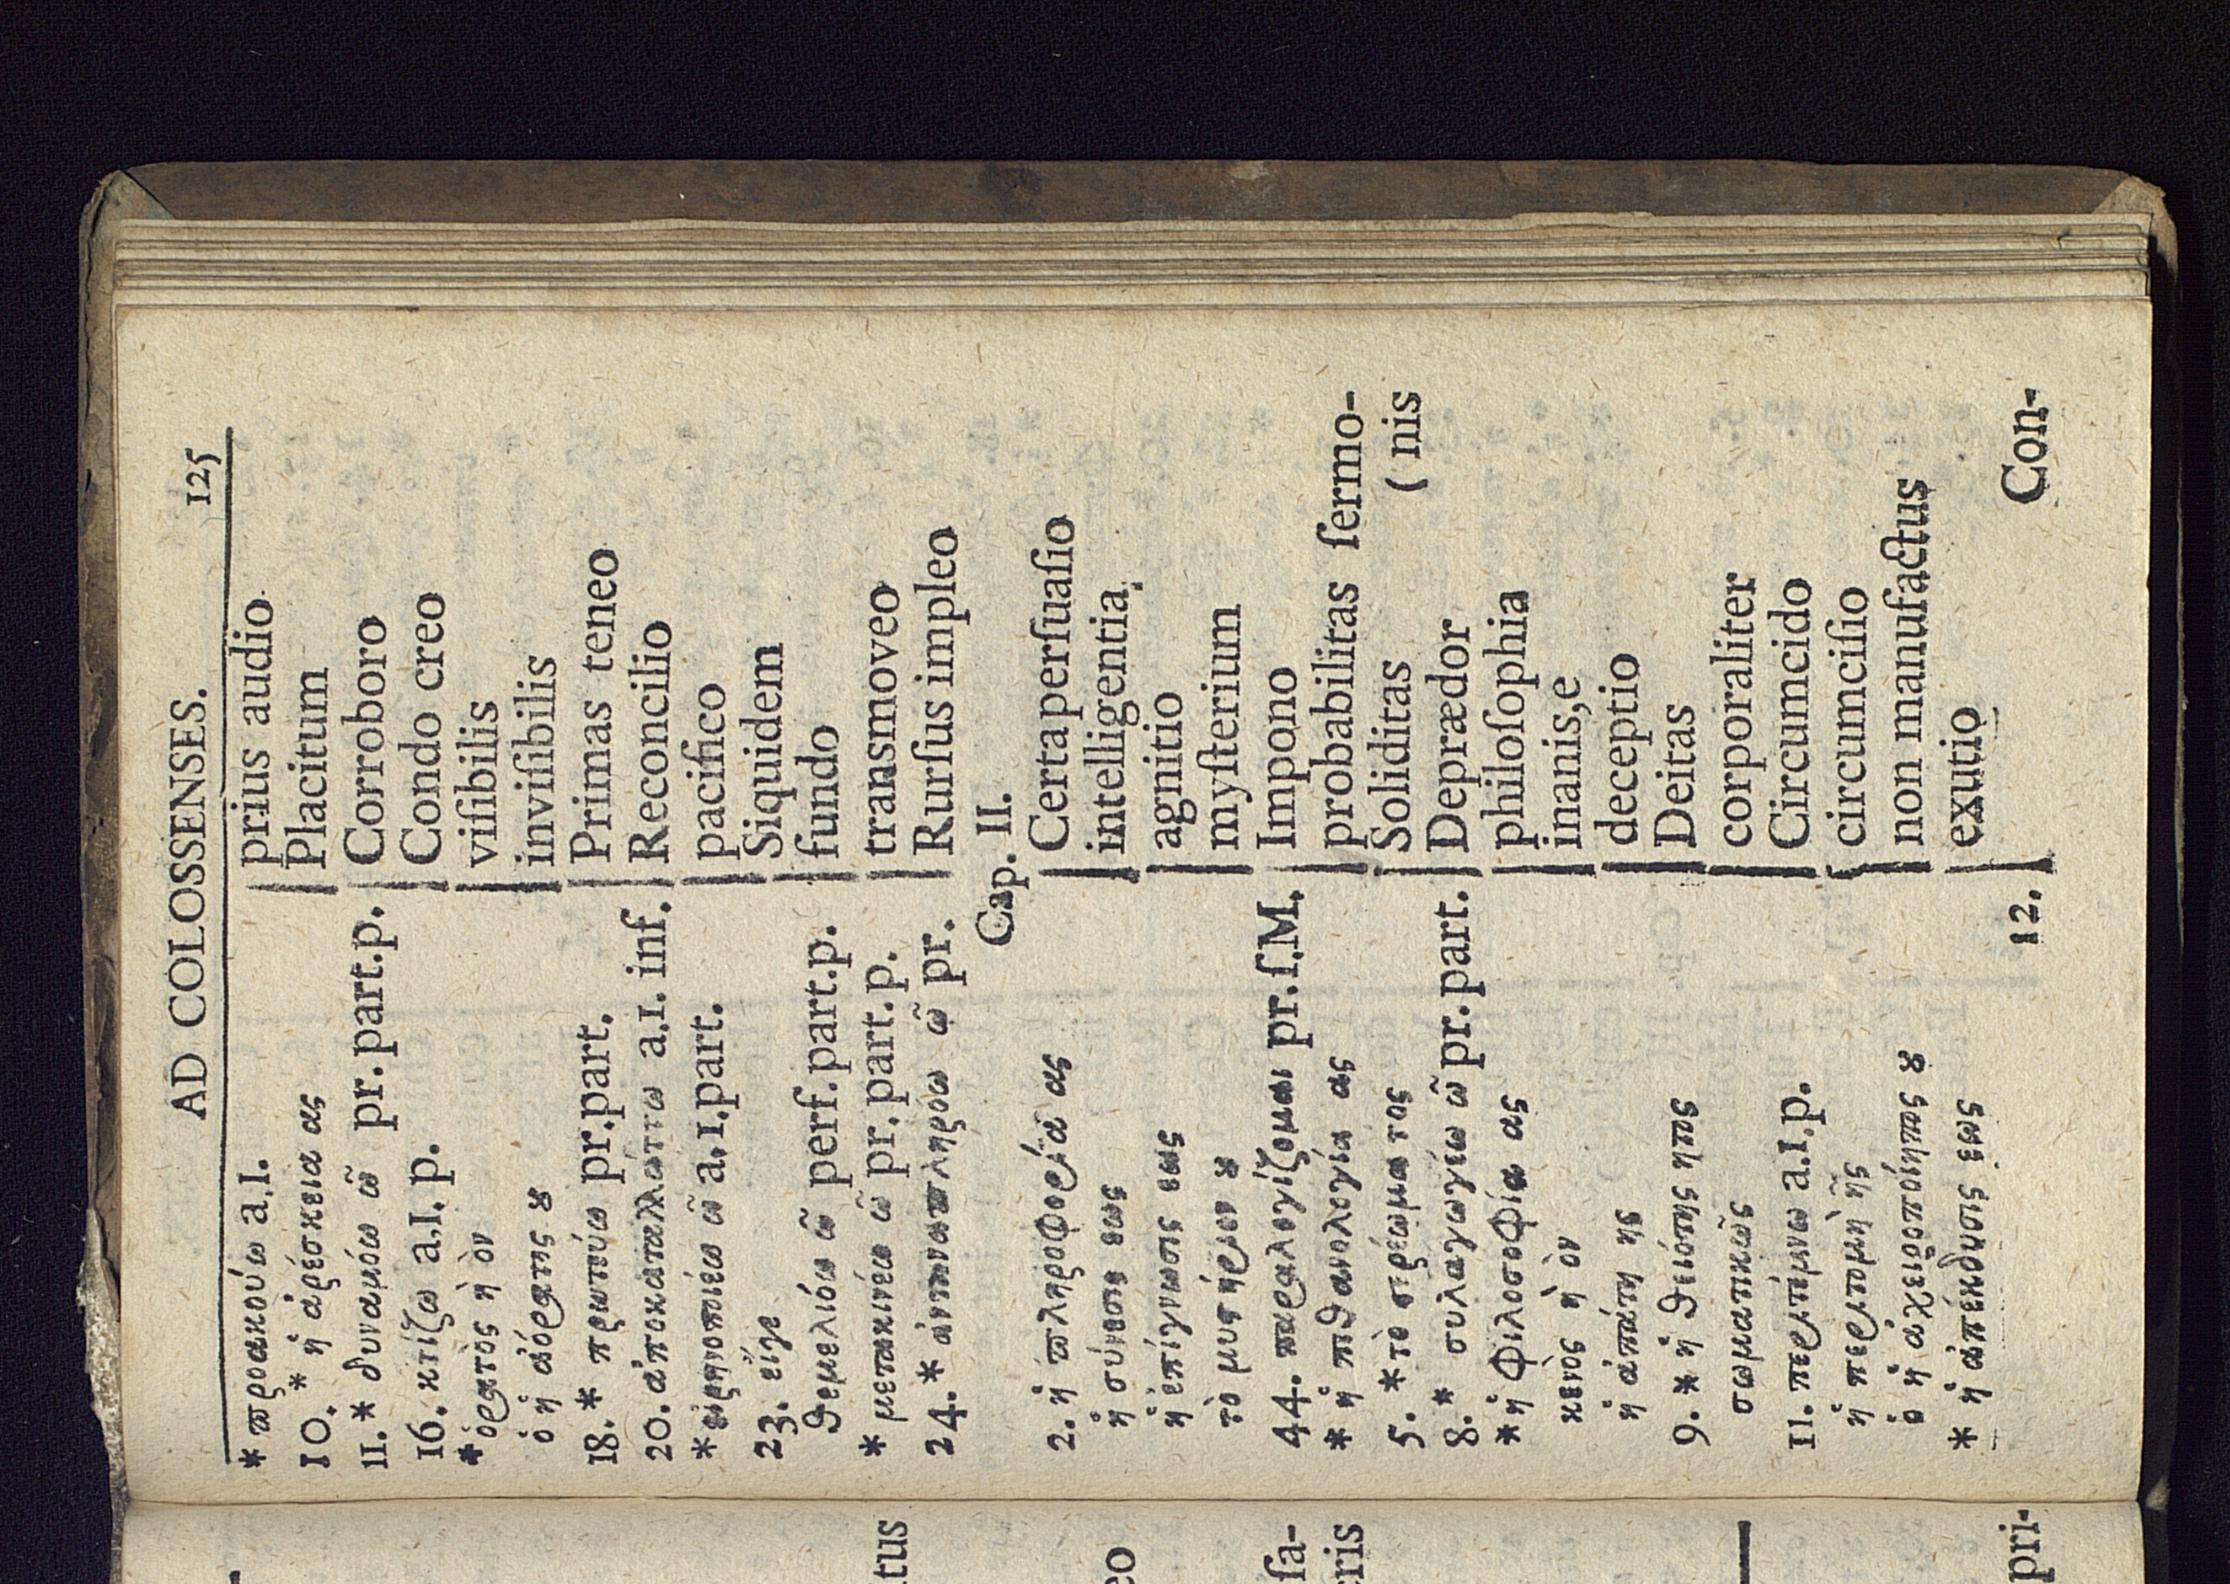 AD COLOSSENSES. 125
* προακούω a.1. | prius audio
10. * ἡ ἀρέσκεια ας | Placitum
11. * δυναμόω ῶ pr. part. p. | Corroboro
16. κτίζω a.1. p. | Condo creo
* ὁρατὸς ἡ ὸν | viſibilis
ὁ ἡ ἀόρατης ȣ | inviſibilis
18. * πρωτεύω pr. part. | Primas teneo
20. ἀποκαταλλάττω a.1. inf. | Reconcilio
* εἰρηνοποιέω ῶ a.1. part. | pacifico
23. εἴγε | Siquidem
θεμελιόω ῶ perf. part. p. | fundo
* μετακινέω ῶ pr. part. p. | transmoveo
24. * ἀνταναπληρόω ῶ pr. | Rurſus impleo
Cap. II.
2. ἡ πληροφορία ας | Certa perſuaſio
ἡ σύνεσις εως | intelligentia
ἡ ἐπίγνωσις εως | agnitio
τὸ μυστήριον ȣ | myſterium
44. παραλογίζομαι pr. ſ. M. | Impono
* ἡ πιθανολογία ας | probabilitas ſermo-
( nis
5. * τὸ στερέωμα τος | Soliditas
8. * συλαγωγέω ῶ pr. part. | Deprædor
* ἡ φιλοσοφία ας | philoſophia
κενὸς ἡ ὸν | inanis, e
ἡ ἀπάτη ης | deceptio
9. * ἡ θειότης ητος | Deitas
σωματικῶς | corporaliter
11. περιτέμνω a.1. p. | Circumcido
ἡ περιτομὴ ῆς | circumciſio
ὁ ἡ ἀχειροποίητος ȣ | non manufactus
* ἡ ἀπέκδυσις εως | exutio
12. Con-
tus
eo
ſa-
eris
pri-